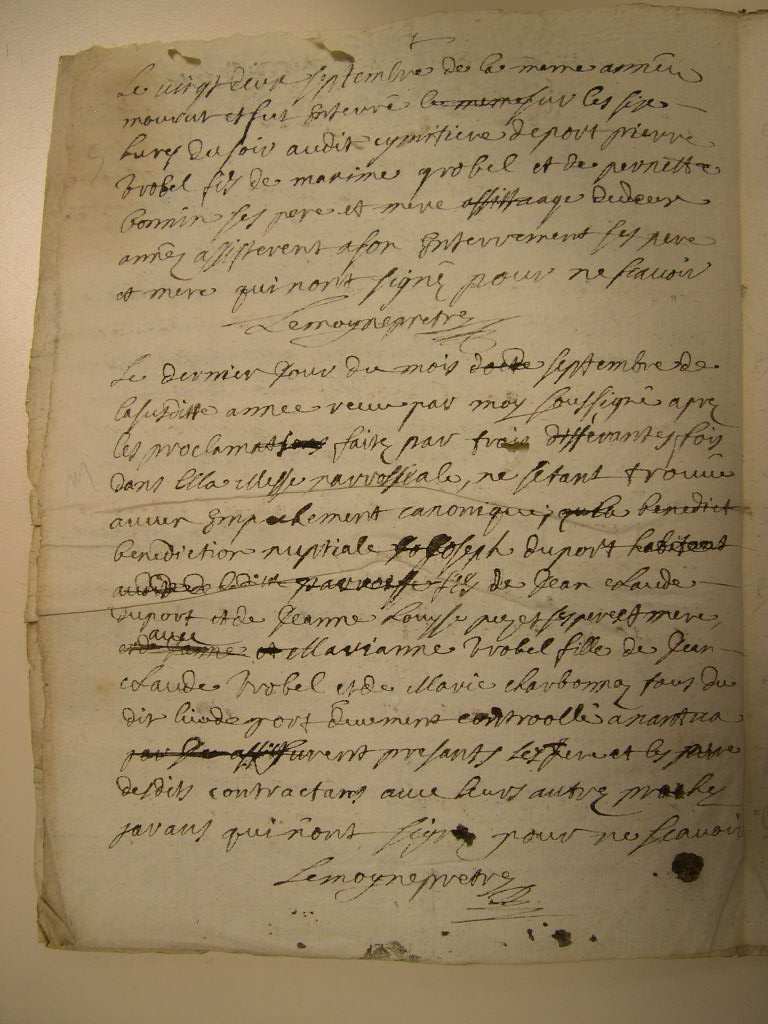 Le vingt deux septembre de la meme année
mourut et fut Enterré le meme sur les six
hures du soir audit cymitiere de port pierre
Trobel fils de maxime grobel et de pernette
bonnin ses pere et mere assitta age de deux
année assisterent a son Enterrement ses pere
et mere qui nont signé pour ne scavoir
Lemoyne pretre
Le dernier Jour du mois docte septembre de
la susditte annee receu par moy soussigné aprez
les proclamations faitez par trois differantes fois
dans lilla Messe parrossiale, ne setant trouvée
aucun Empechement canonique, qu la benedict
benediction nuptiale Joseph duport habitant
de laditte parroisse fils de Jean claude
duport et de Jeanne Louysse ses pere et mere,
avec
et de Janne et Marianne Trobel fille de Jean
claude Trobel et de Marie charbonnoz tous du
dit lieu de port deuement controollé a nantua
par Je assitturent presants les pere et les pere
desdits contractans avec leurs autrez prochez
parans qui nont signé pour ne scavoir
Lemoyne pretre